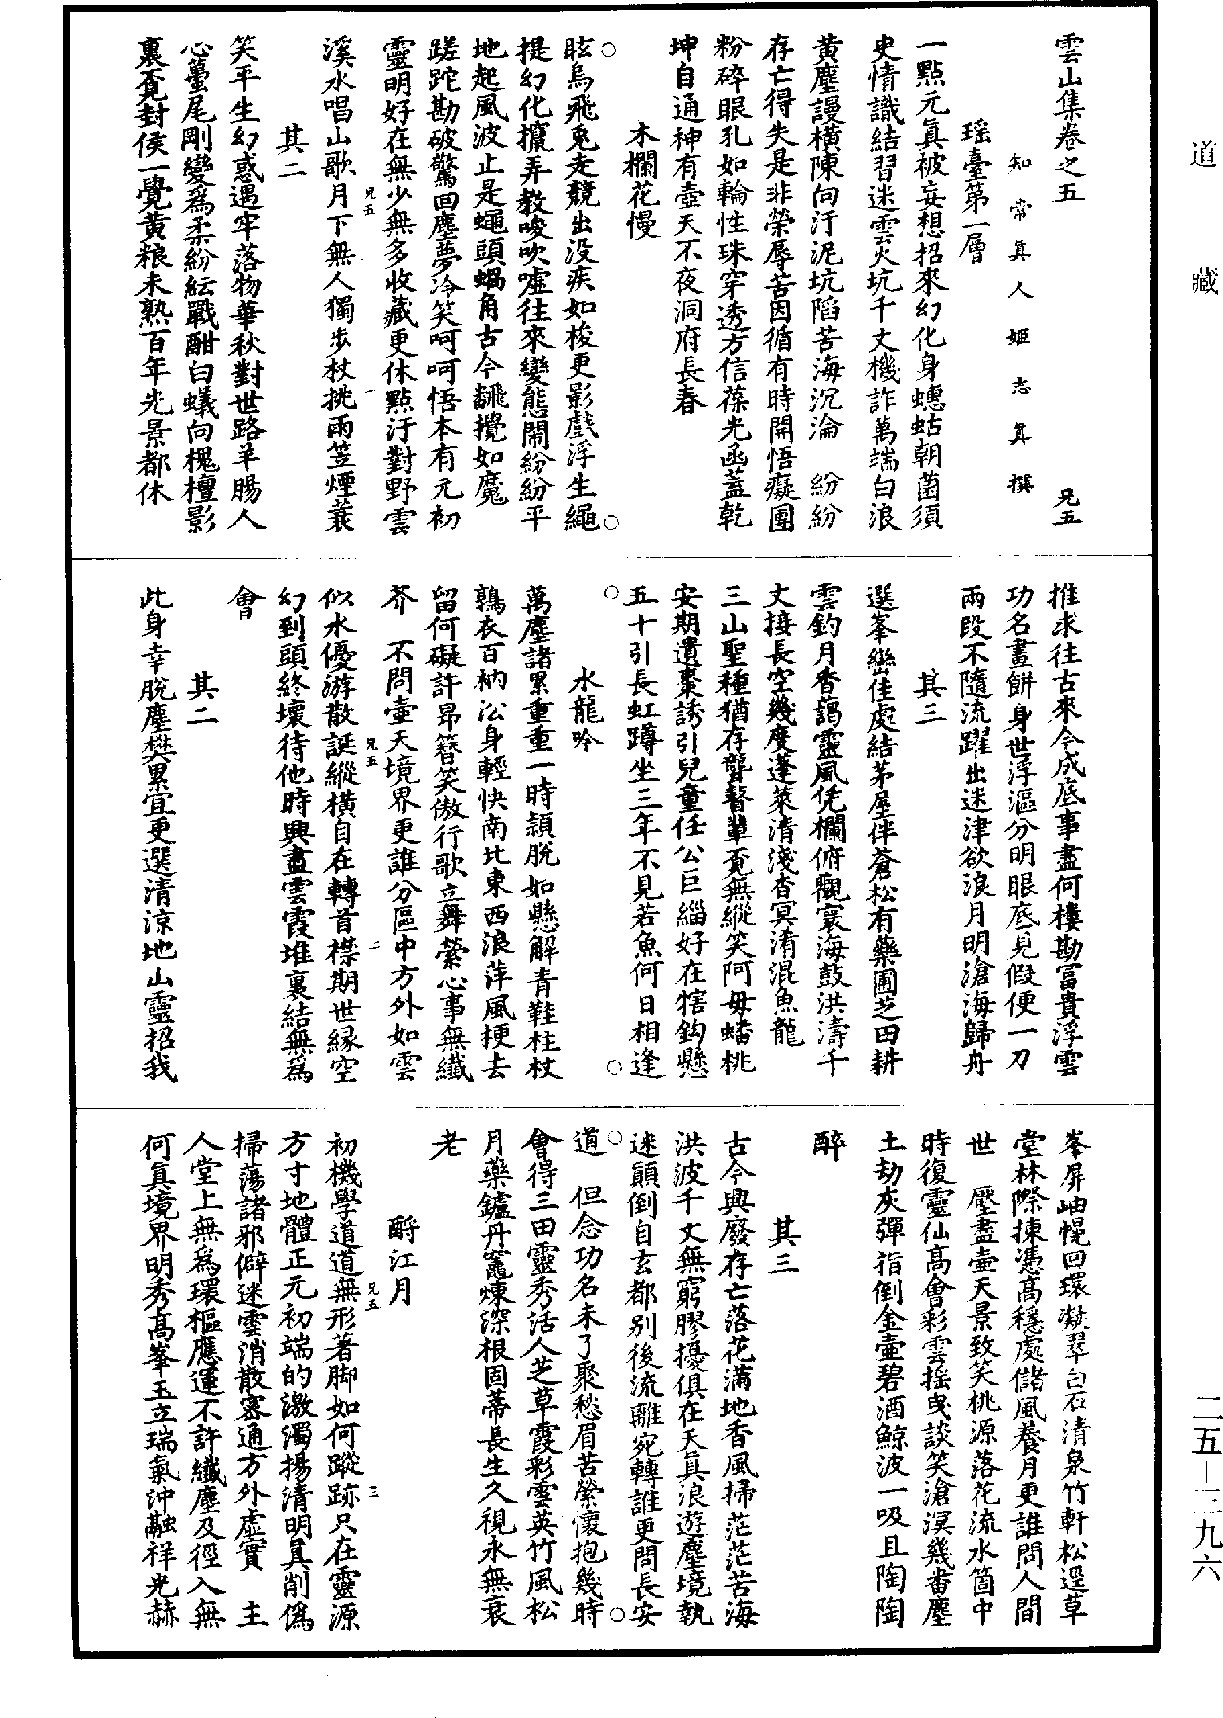 道藏
雲山集卷之五
兄五
知常真人姬志真撰
瑶臺第一層
一點元真被妄想招來幻化身蟪蛄朝菌須
史情識結習迷雲火坑千丈機詐萬端白浪
黄塵謾横陳向汙泥坑陷苦海沉淪　紛紛
存亡得失是非榮辱苦因循有時開悟癡團
粉碎眼孔如輪性珠穿透方信葆光函蓋乾
坤自通神有壺天不夜洞府長春
木欄花慢
眩烏飛兎走競出没疾如梭更影戲浮生繩
提幻化攛弄教唆吹嘘往來變態鬧紛紛平
地起風波止是蠅頭蝸角古今翻攪如魔
蹉跎勘破驚回塵夢冷笑呵呵悟本有元初
靈明好在無少無多收藏更休點汙對野雲
兄五　一
溪水唱山歌月下無人獨步杖挑雨笠煙蓑
其二
笑平生幻惑遇牢落物華秋對世路羊腸人
心蠆尾剛變爲柔紛紜戰酣白蟻向槐檀影
裏覔封侯一覺黄粮未熟百年光景都休
推求往古來今成底事盡何樓勘富貴浮雲
功名畫餅身世浮漚分明眼底見假便一刀
兩段不隨流躍出迷津欲浪月明滄海歸舟
其三
選峯巒佳處結茅屋伴蒼松有藥圃芝田耕
雲釣月香藹靈風凭欄俯觀寰海鼓洪濤千
丈接長空幾度蓬萊清淺杳冥淆混魚龍
三山聖種猶存聾瞽輩覔無縱笑阿母蟠桃
安期遺棗誘引兒童任公巨緇好在犗鈎懸
五十引長虹蹲坐三年不見若魚何日相逢
水龍吟
萬塵諸累重重一時頴脱如懸解青鞋柱杖
鶉衣百衲㳂身輕快南北東西浪萍風梗去
留何礙許昂簪笑傲行歌立舞縈心事無纖
芥　不問壷天境界更誰分區中方外如雲
兄五　二
似水優游散誕縱横自在轉首襟期世縁空
幻到頭終壞待他時興盡雲霞堆裏結無爲
會
其二
此身幸脱塵樊累宜更選清凉地山靈招我
峯屏岫幌回環凝翠白石清泉竹軒松逕草
堂林際揀憑高穩處儲風養月更誰問人間
世　壓盡壷天景致笑桃源落花流水箇中
時復靈仙高會彩雲摇曵談笑滄溟幾番塵
土劫灰彈指倒金壷碧酒鯨波一吸且陶陶
醉
其三
古今興廢存亡落花滿地香風掃茫茫苦海
洪波千丈無窮膠擾俱在天真浪遊塵境執
迷顛倒自玄都别後流離宛轉誰更問長安
道　但念功名未了聚愁眉苦縈懷抱幾時
會得三田靈秀活人芝草霞彩雲英竹風松
月藥鑪丹竈煉深根固蔕長生久視永無衰
老
酹江月
兄五　三
初機學道道無形著脚如何蹤跡只在靈源
方寸地體正元初端的激濁揚清明真削僞
掃蕩諸邪僻迷雲消散塞通方外虚實　主
人堂上無爲環樞應運不許纖塵及徑入無
何真境界明秀高峯玉立瑞氣沖融祥光赫
二五—三九六